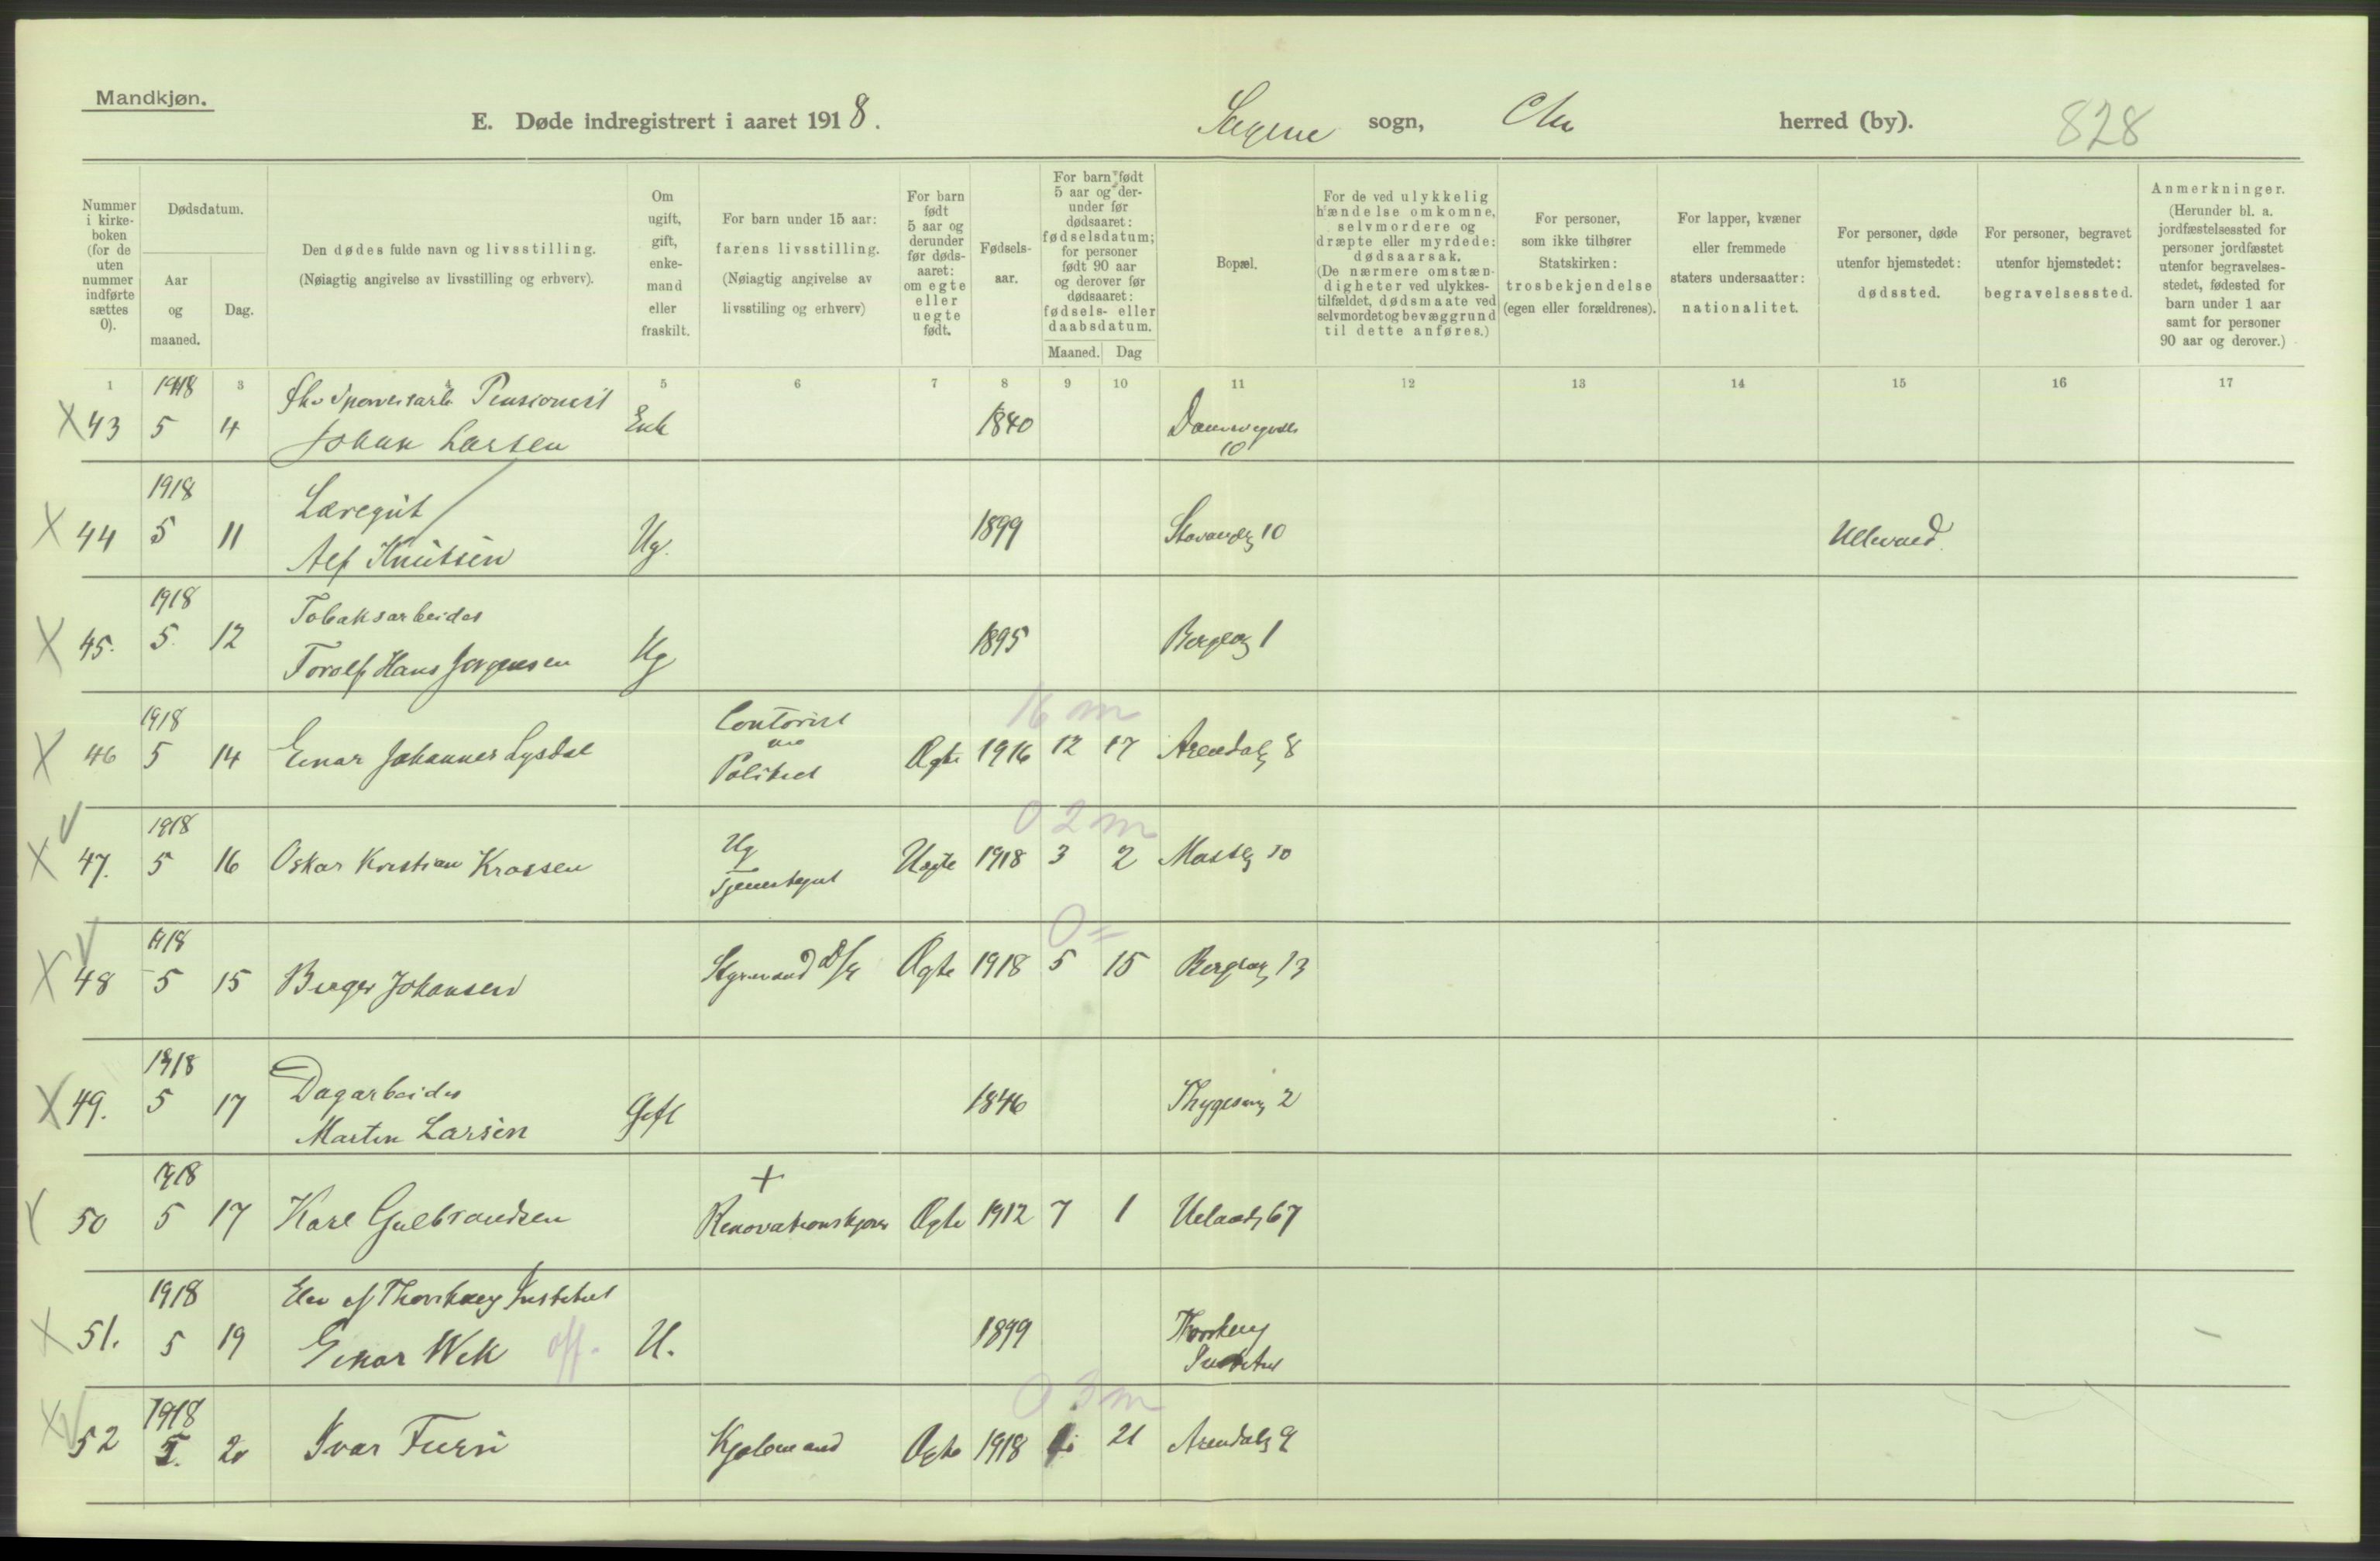 Mandkjøn.
E. Døde indregistrert i aaret 1918.
Sagene sogn, Chr herred (by). 828
Nummer i kirke- boken (for de uten nummer indførte sættes 0).
Dødsdatum.
Aar og maaned.
Dag.
Den dødes fulde navn og livsstilling.
(Nøiagtig angivelse av livsstilling og erhverv).
Om ugift, gift, enke- mand eller fraskilt.
For barn under 15 aar:
farens livsstilling.
(Nøiagtig angivelse av
livsstiling og erhverv)
For barn født 5 aar og derunder før døds- aaret: om egte eller uegte født.
Fødsels- aar.
For barn født 5 aar og der- under før dødsaaret: fødselsdatum; for personer født 90 aar og derover før dødsaaret: fødsels- eller daabsdatum.
Maaned. Dag
Bopæl.
For de ved ulykkelig hændelse omkomne, selvmordere og dræpte eller myrdede: dødsaarsak. (De nærmere omstæn- digheter ved ulykkes- tilfældet, dødsmaate ved selvmordet og bevæggrund til dette anføres.)
For personer, som ikke tilhører Statskirken: trosbekjendelse (egen eller forældrenes).
For lapper, kvæner eller fremmede staters undersaatter: nationalitet.
For personer, døde utenfor hjemstedet: dødssted.
For personer, begravet utenfor hjemstedet: begravelsessted.
Anmerkninger. (Herunder bl. a. jordfæstelsessted for personer jordfæstet utenfor begravelses- stedet, fødested for barn under 1 aar samt for personer 90 aar og derover.)
1 3 5 6 7 8 9 10 11 12 13 14 15 16 17
1918 Pensionist
X 43 5 4 Johan Larsen Enk 1840
10
1918 Læregut
X 44 5 11 Alf Knutsen Ug. 1899 Stavangg 10 Ullevaal
1918 Tobaksarbeider
X 45. 5. 12 Torolf Hans Jørgensen Ug 1895 Bergsg 1
16 m
1918 Contorist
X 46 5 14 Einar Johannes Lysdal Politiet Ægte 1916 12 17 Arendalg 8
0 2 m
1918 Ug
X 47. 5 16 Oskar Kristian Krossen Tjenestepit Uegte 1918 3 2 Mosseg 10
0 =
1918
X 48 5 15 Birger Johansen Styrmand Ægte 1918 5 15 Bergsg 13
1918 Dagarbeider
X 49. 5 17 Martin Larsen Gift 1846 Thygesesg 2
1918 +
50 5 17 Karl Gulbrandsen Renovationskjører Ægte 1912 7 1 Uelandsg 67
1918 Elev af Thorshaug Institut
X 51. 5 19 Einar Wik off. U. 1899 Thorshaug
Institut
0 3 m
1918
X 52 5. 20 Ivar Furu Kjølemand Ægte 1918 21 Arendalsg 9